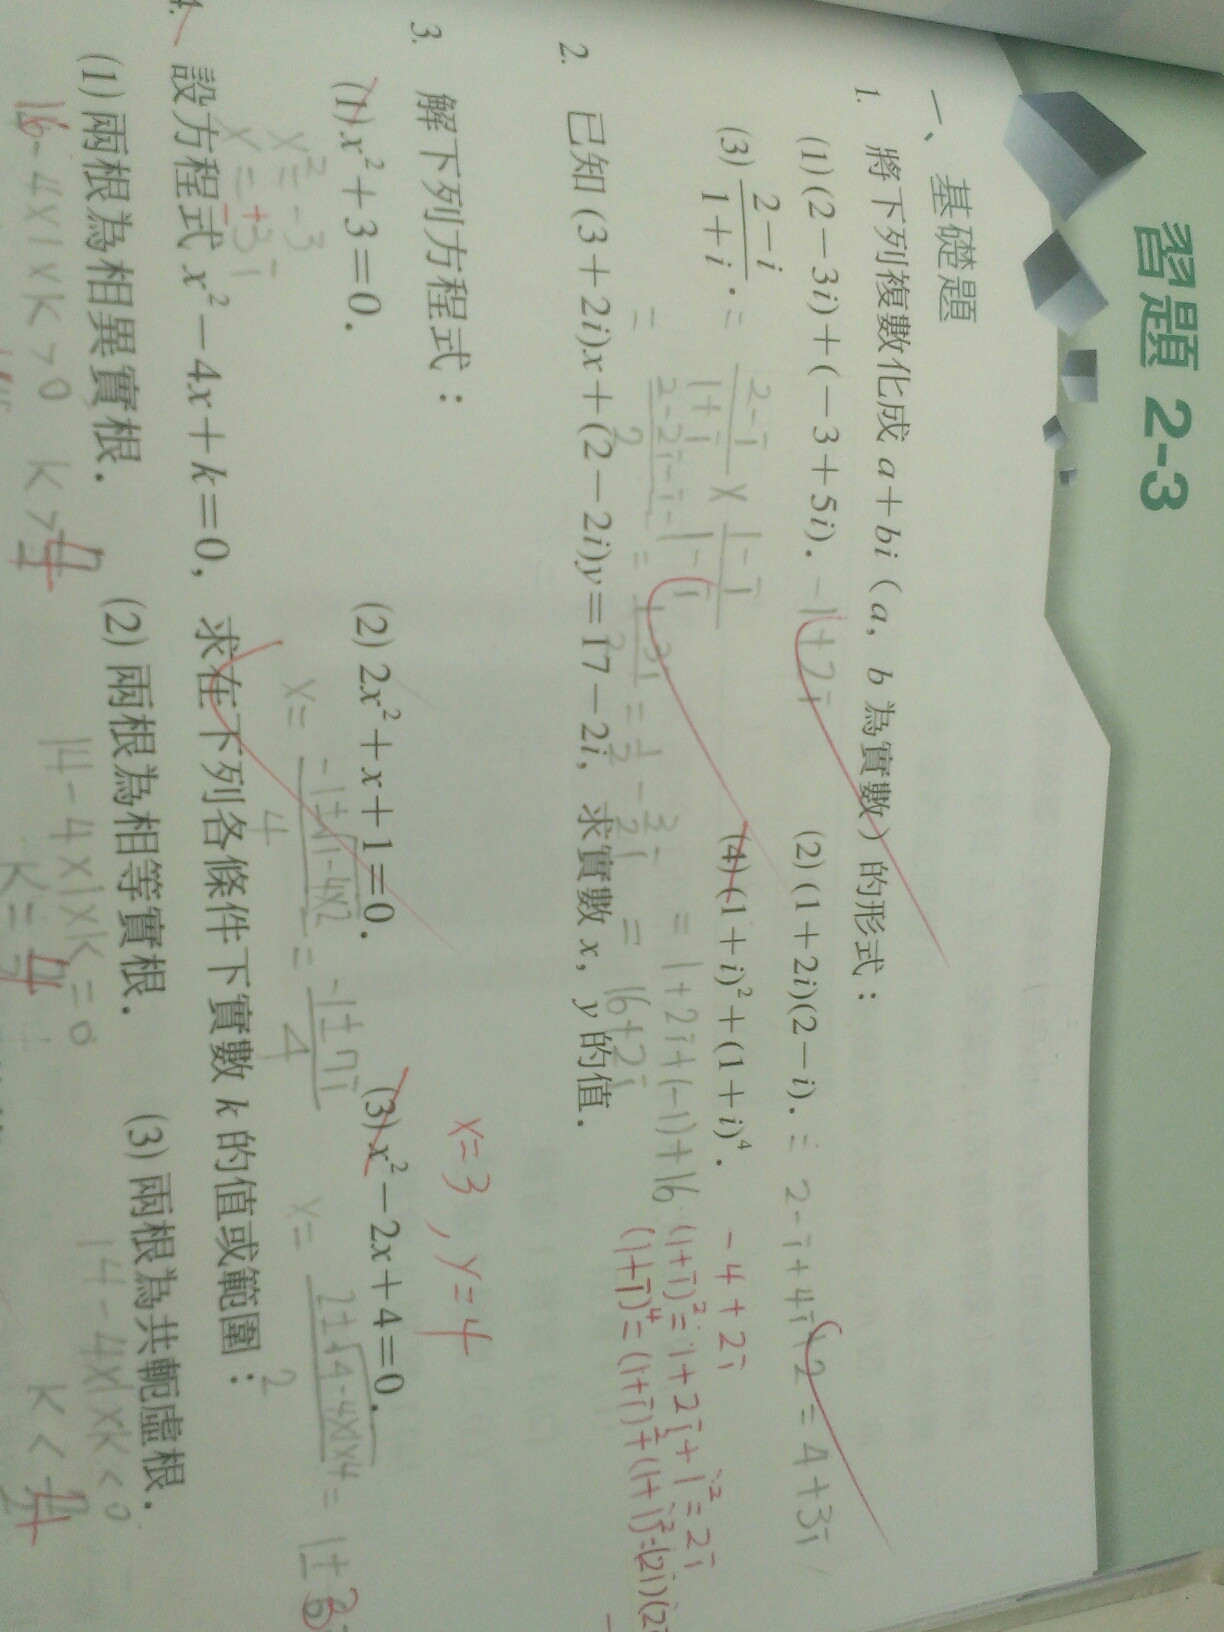 習題 2-3
一、基礎題
1. 將下列複數化成 a+bi（a, b 為實數）的形式：
(1) (2-3i)+(-3+5i). -1+2i
(2) (1+2i)(2-i). = 2-i+4i+2 = 4+3i
(3) \frac{2-i}{1+i}. = \frac{2-i}{1+i} × \frac{1-i}{1-i}
(4) (1+i)²+(1+i)⁴. -4+2i
= 1+2i+(-1)+16
= 16+2i
(1+i)²=1+2i+i²=2i
2. 已知 (3+2i)x+(2-2i)y=17-2i, 求實數 x, y 的值.
x=3, y=4
3. 解下列方程式：
(1) x²+3=0.
x²=-3
(2) 2x²+x+1=0.
x= \frac{-1±√1-4×2}{4} = \frac{-1±√7i}{4}
(3) x²-2x+4=0.
x= \frac{2±√4-4×1×4}{2} =
4. 設方程式 x²-4x+k=0, 求在下列各條件下實數 k 的值或範圍：
(1) 兩根為相異實根.
16-4×1×k>0
(2) 兩根為相等實根.
14-4×1×k=0
(3) 兩根為共軛虛根.
14-4×1×k<0